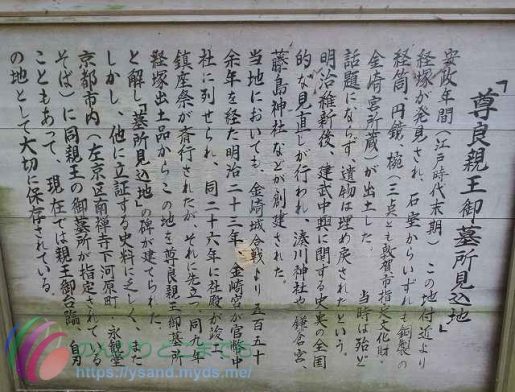 「尊良親王御墓所見込地」
安政年間(江戸時代末期)この地付近より
経塚が発見され、石室からいずれも銅製の
経筒、円鏡、椀(三点とも敦賀市指定文化財・
金崎宮所蔵)が出土した。当時は殆ど
話題にならず、遺物は埋め戻されたという。
明治維新後、建武中興に関する史実の全国
的な見直しが行われ、湊川神社や鎌倉宮、
藤島神社などが創建された。
当地においても、金崎城合戦より五百五十
余年を経た明治二十三年、金崎宮が官幣中
社に列せられ、同二十六年に社殿が竣工、
鎮座祭が斎行されたが、それに先立つ同九年、
経塚出土品からこの地を尊良親王御墓所
と解し「墓所見込地」の碑が建てられた。
しかし、他に立証する史料に乏しく、また
京都市内(左京区南禅寺下河原町・永観堂
そば)に同親王の御墓所が指定されている
こともあって、現在では親王御自刃
の地として大切に保存されている。
のんびりとまったり
https://ysand.myds.me/